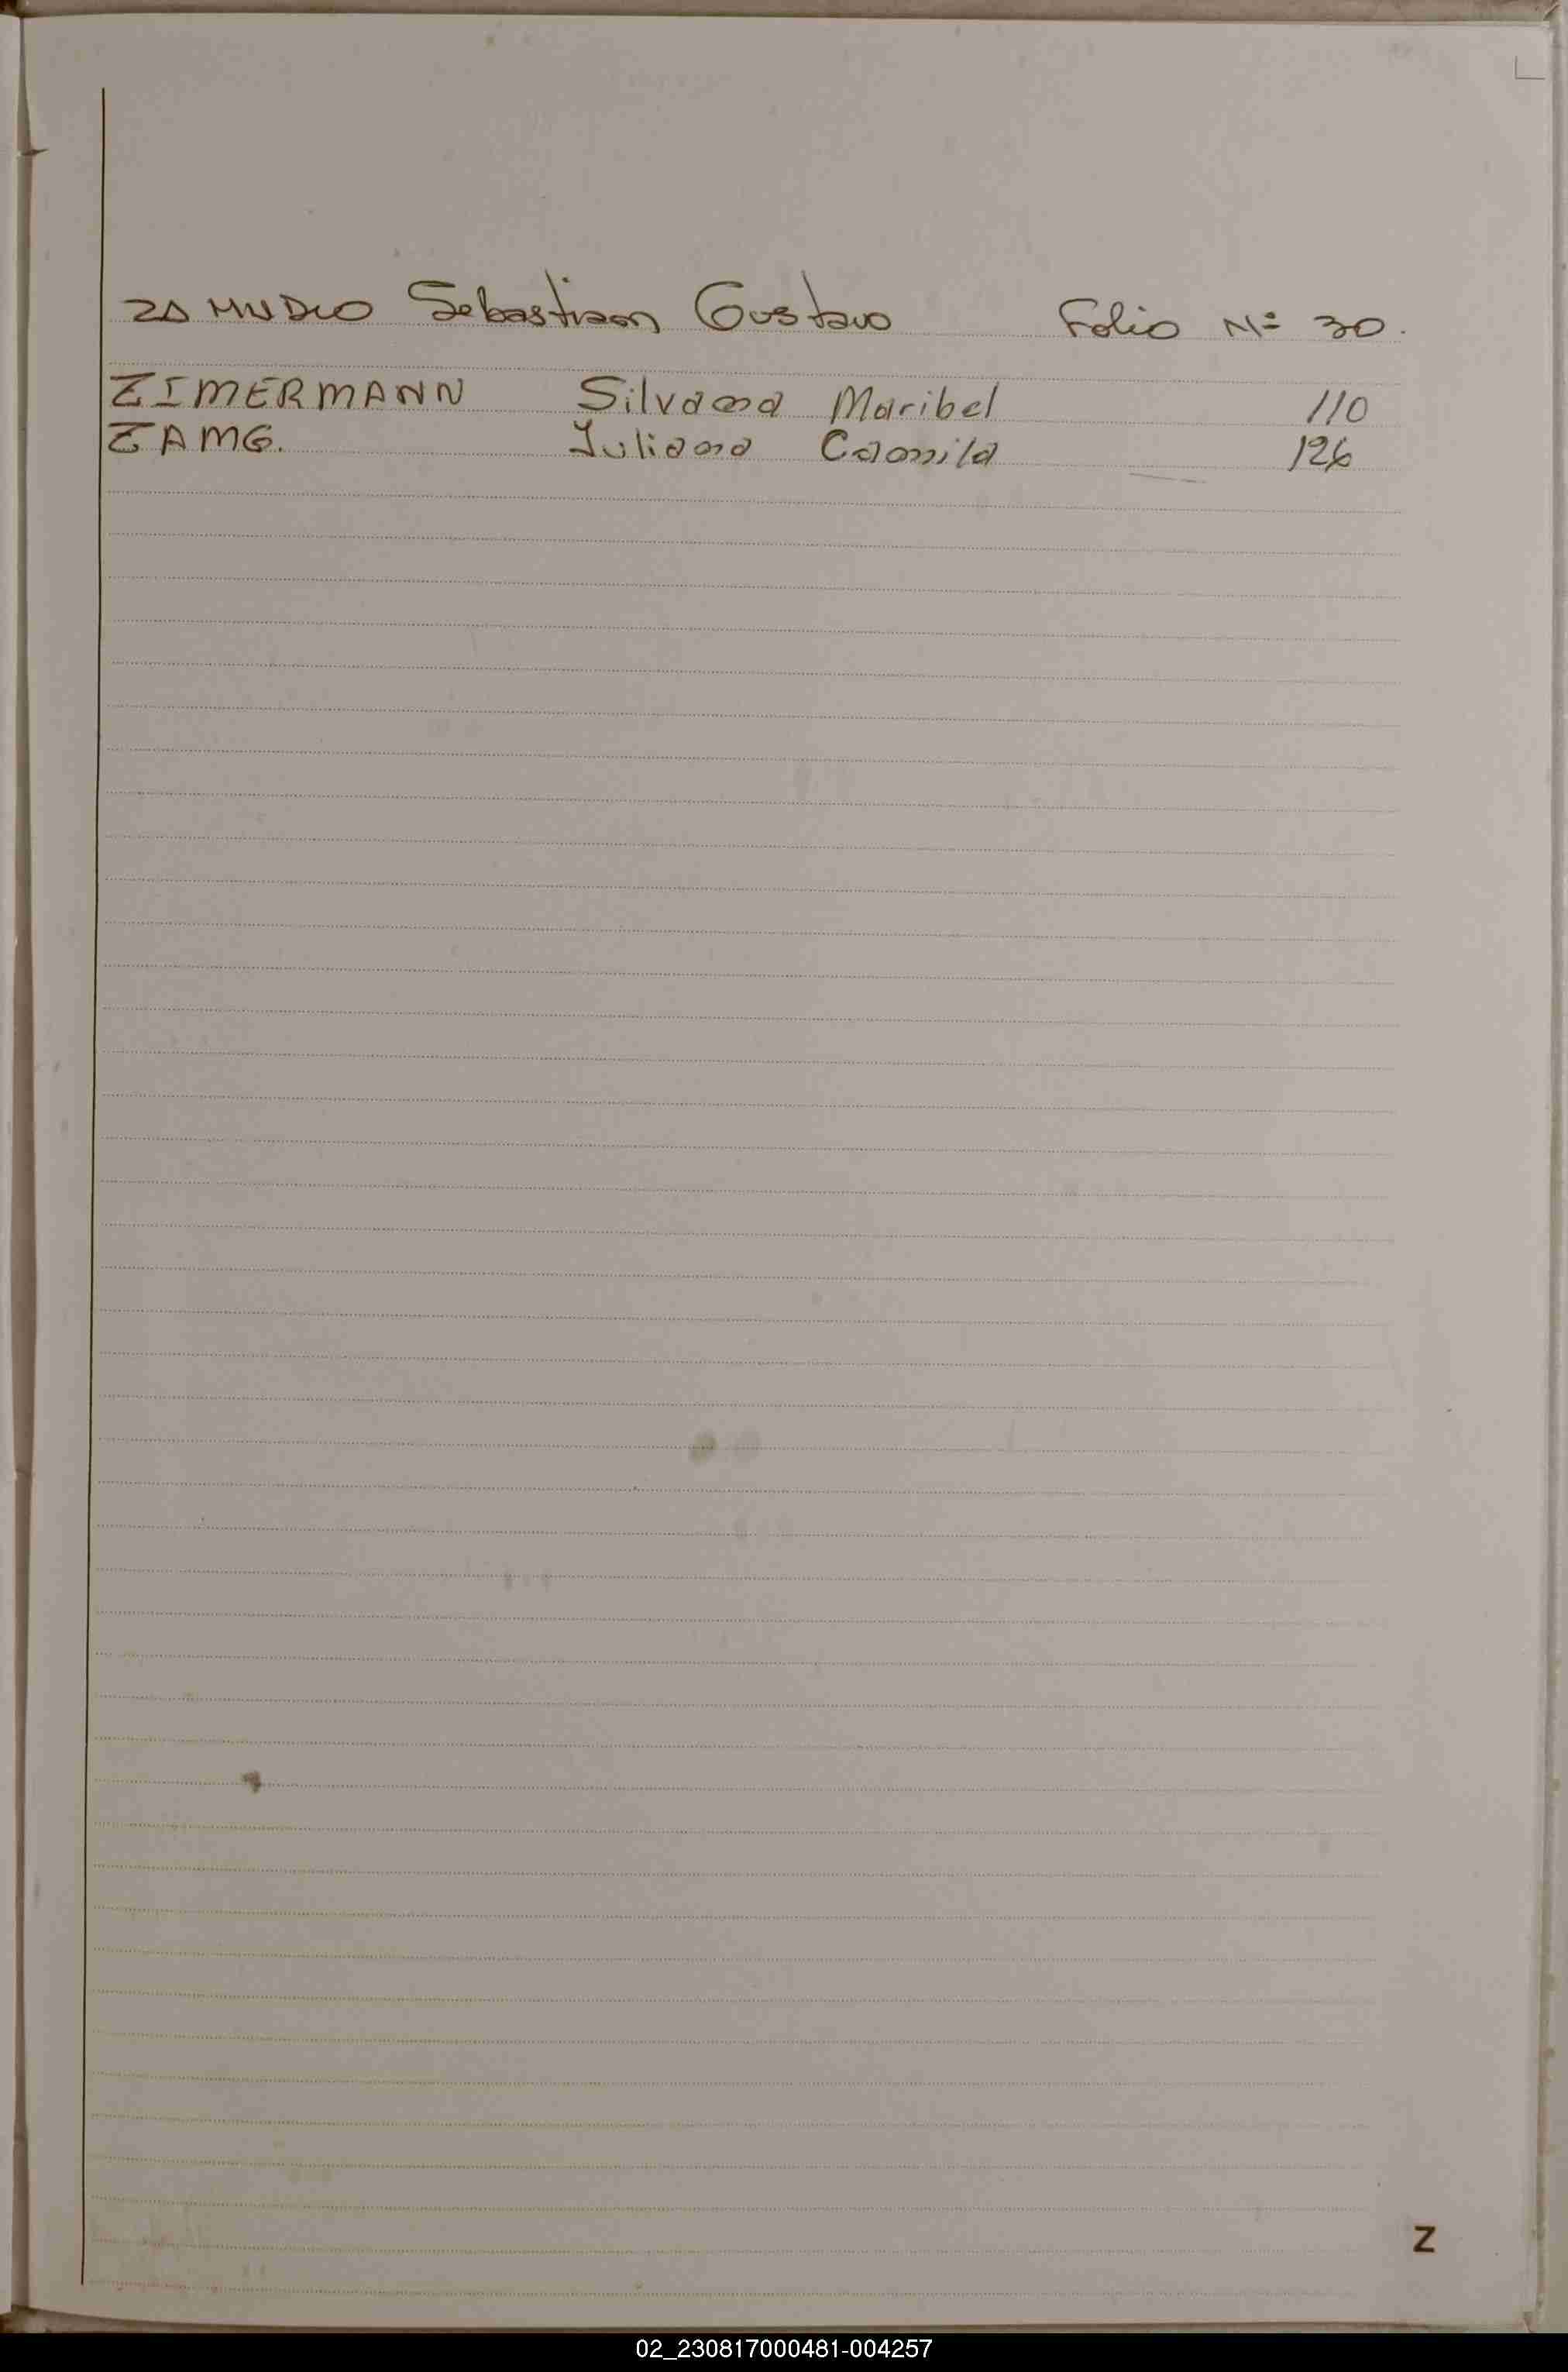 ZAMUDIO Sebastian Gustavo Folio Nº 30.
ZIMERMANN Silvana Maribel 110
ZAMG. Juliana Camila 126
Z
02_230817000481-004257